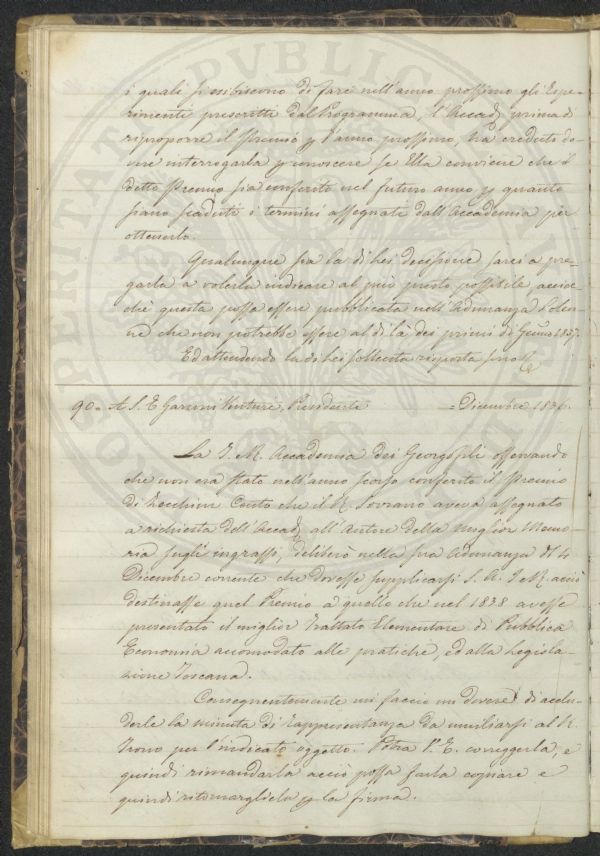 i quali si esibiscono di fare nell'anno prossimo gli Espe-
rimenti prescritti dal Programma, l'Accad. prima di
riproporre il Premio p l'anno prossimo, ha creduto do-
vere interrogarla p conoscere se Ella conviene che il
detto Premio sia conferito nel futuro anno p quanto
siano scaduti i termini assegnati dall'Accademia per
ottenerlo.
Qualunque sia la di Lei decisione, sarei a pre-
garla a volerla indicare al più presto possibile, accio-
chè questa possa essere pubblicata nell'Adunanza Solen-
ne che non potrebbe essere al di là dei primi di Genn. 1837.
Ed attendendo la di Lei sollecita risposta sono
90. A S. E. Garzoni Venturi, Presidente = Dicembre 1836.
La I. R. Accademia dei Georgofili osservando
che non era stato nell'anno scorso conferito il Premio
di Zecchini Cento che il R. Sovrano aveva assegnato
a richiesta dell'Accad. all'Autore della miglior Memo-
ria sugli ingrassi, deliberò nella sua Adunanza de' 4
Dicembre corrente che dovesse supplicarsi S. A. I. e R. acciò
destinasse quel Premio a quello che nel 1838 avesse
presentato il miglior Trattato Elementare di Pubblica
Economia accomodato alle pratiche, ed alla Legisla-
zione Toscana.
Conseguentemente mi faccio un dovere di acclu-
derle la minuta di Rappresentanza da umiliarsi al R.
Trono per l'indicato oggetto. Potrà V. E. correggerla, e
quindi rimandarla acciò possa farla copiare e
quindi ritornargliela p la firma.